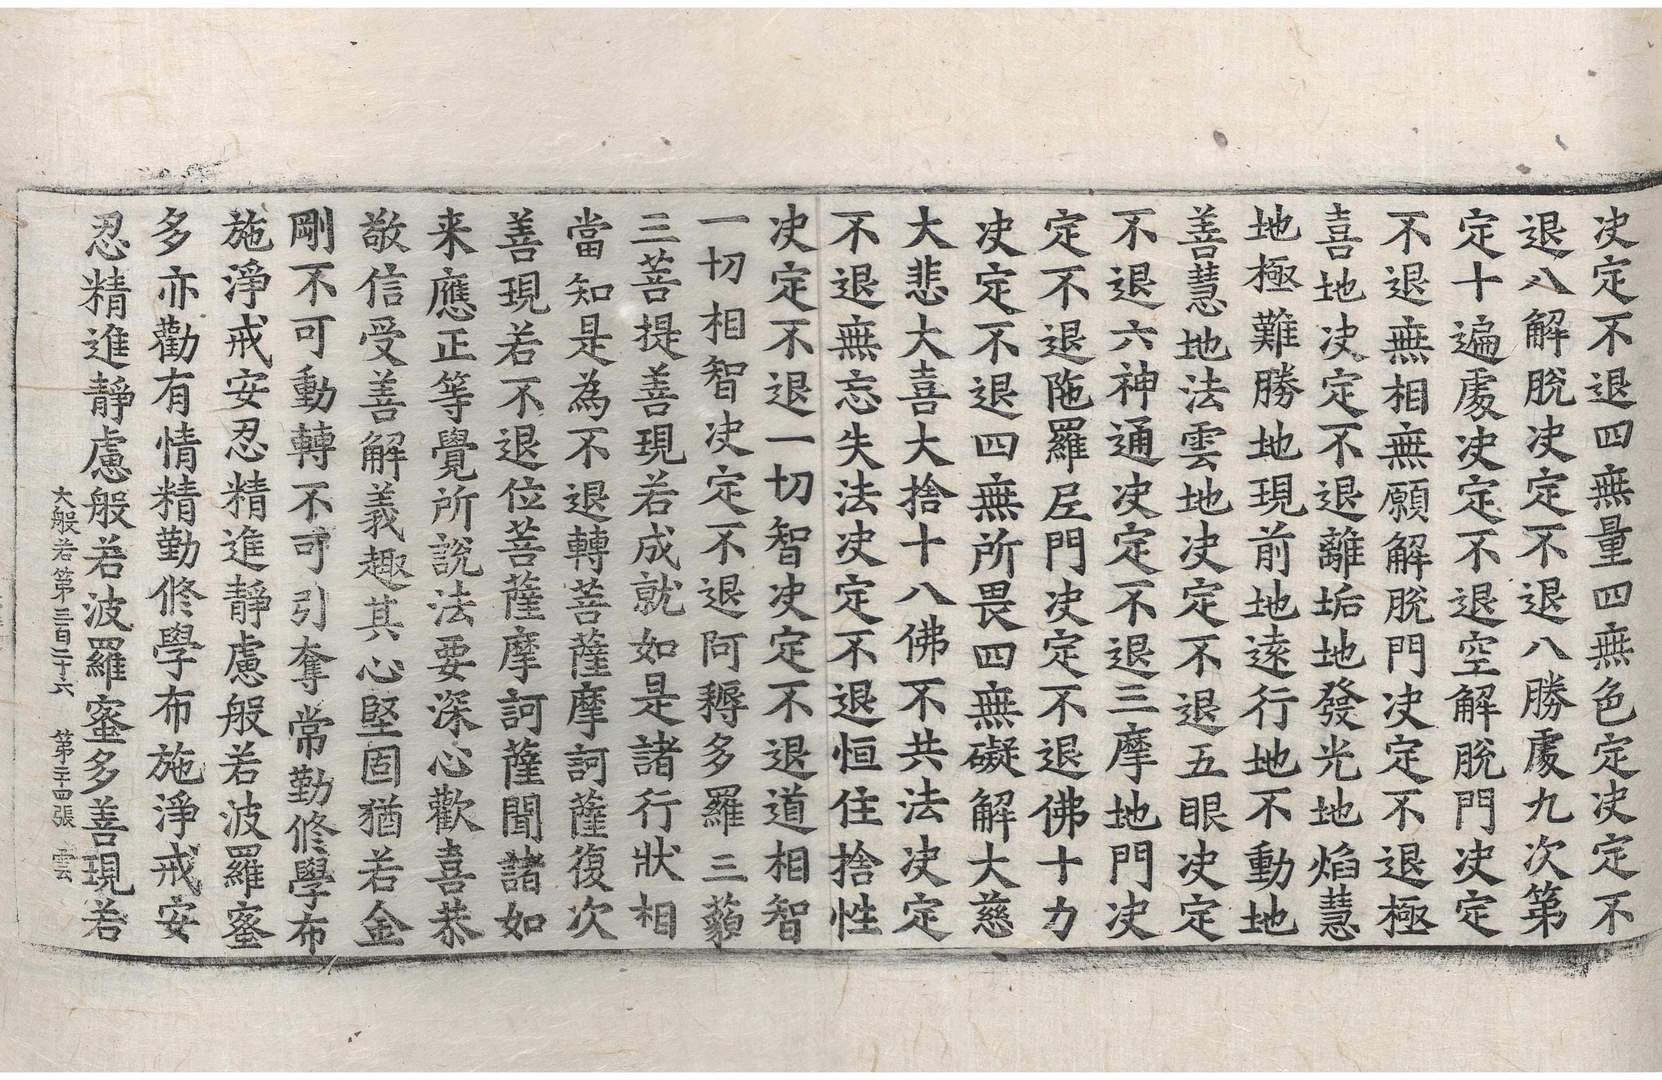 决定不退四無量四無色定决定不
退八解脫决定不退八勝處九次第
定十遍處决定不退空解脫門决定
不退無相無願解脫門决定不退極
喜地决定不退離垢地發光地焰慧
地極難勝地現前地遠行地不動地
善慧地法雲地决定不退五眼决定
不退六神通决定不退三摩地門决
定不退陁羅尼門决定不退佛十力
决定不退四無所畏四無礙解大慈
大悲大喜大捨十八佛不共法决定
不退無忘失法决定不退恒住捨性
决定不退一切智决定不退道相智
一切相智决定不退阿耨多羅三藐
三菩提善現若成就如是諸行狀相
當知是為不退轉菩薩摩訶薩復次
善現若不退位菩薩摩訶薩聞諸如
来應正等覺所說法要深心歡喜恭
敬信受善解義趣其心堅固猶若金
剛不可動轉不可引奪常勤修學布
施淨戒安忍精進靜慮般若波羅蜜
多亦勸有情精勤修學布施淨戒安
忍精進靜慮般若波羅蜜多善現若
大般若第三百二十六 第二十四張 雲